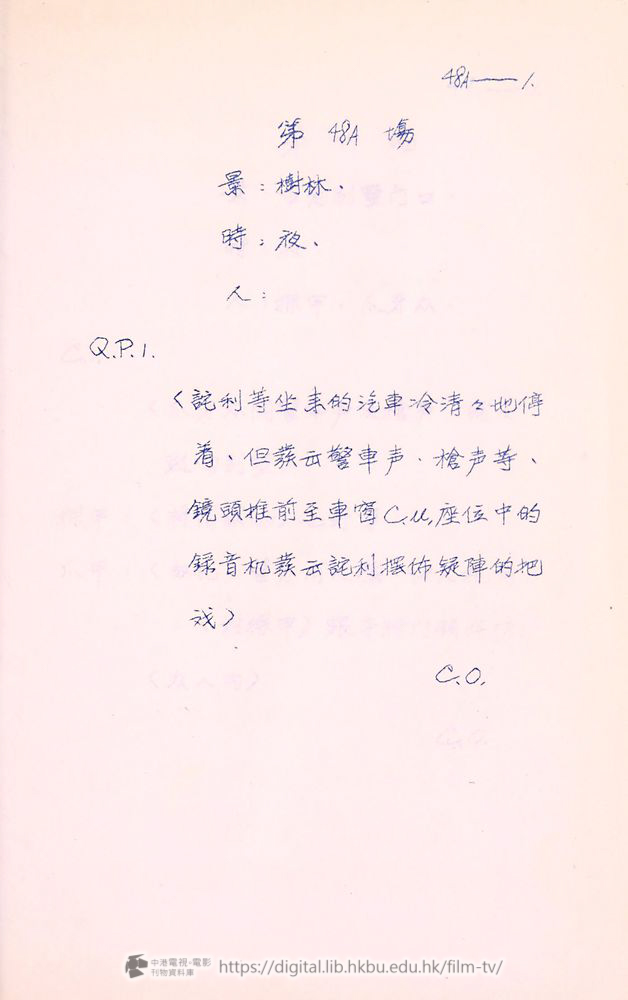 48A——1.
第 48A 場
景：樹林．
時：夜、
人：
Q.P.1.
〈託利等坐来的汽車冷清々地停
着、但蓑云警車声．槍声等、
鏡頭推前至車窗C.U.座位中的
録音机蓑云託利摆佈疑陣的把
戏〉
C.O.
中港電視·電影
刊物資料庫
https://digital.lib.hkbu.edu.hk/film-tv/